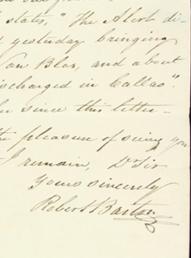 states, "The Alert di-
d yesterday bringing
Von Blos, and about
scharged in Callao."
since this letter
the pleasure of seeing you
I remain, Dr Sir
Yours sincerely
Robert Barton